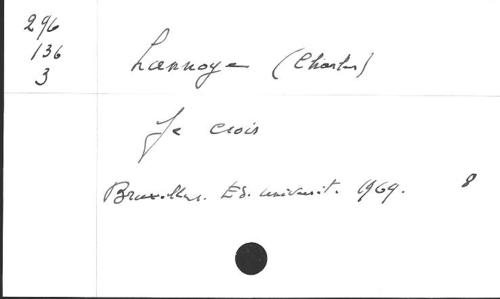 296
136
3
Lannoye (Charles)
Je crois
Bruxelles. Ed. universit. 1969. 8